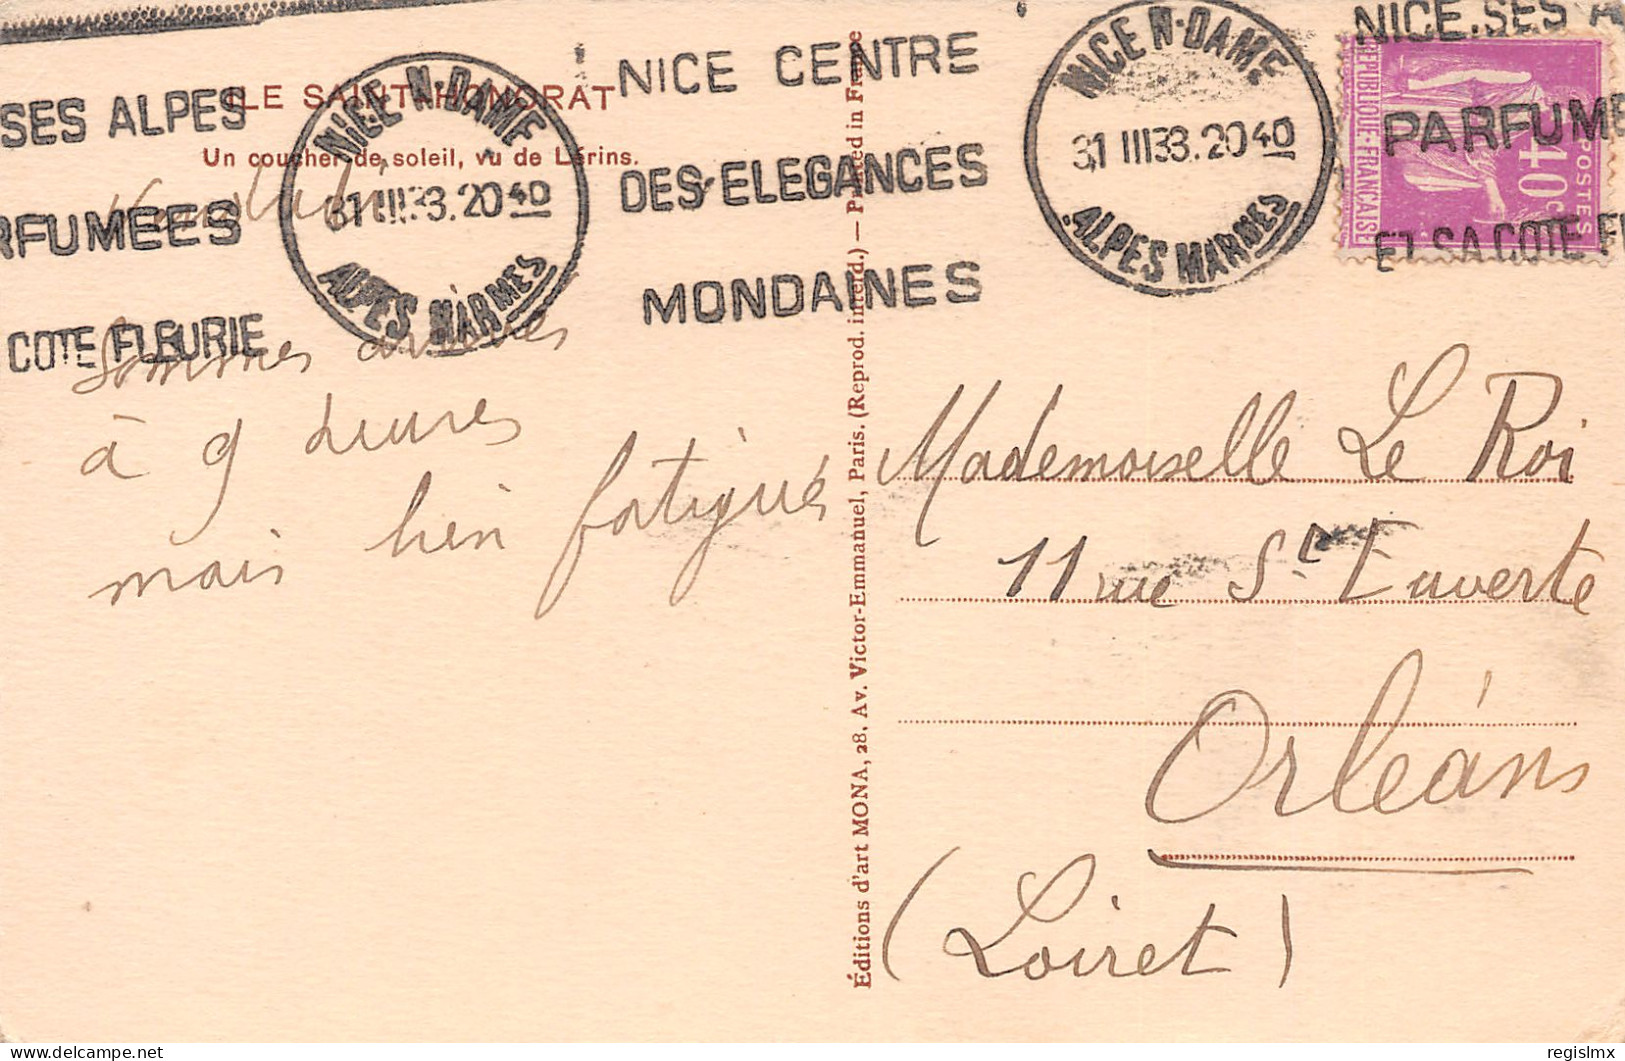 ILE SAINT-HONORAT
Un coucher de soleil, vu de Lérins.
SES ALPES
RFUMEES
COTE FLEURIE
NICE N-DAME
31 III 33. 20 40
ALPES MARMES
NICE CENTRE
DES ELEGANCES
MONDAINES
NICE N-DAME
31 III 33. 20 40
ALPES MARMES
NICE. SES A
PARFUME
ET SA COTE F
REPUBLIQUE-FRANÇAISE
POSTES
40c
Vendredi
Sommes arrivées
à 9 heures
mais bien fatigués
Éditions d'art MONA, 28, Av. Victor-Emmanuel, Paris. (Reprod. interd.) — Printed in France
Mademoiselle Le Roi
11 rue St Euverte
Orléans
(Loiret)
delcampe.net
regislmx